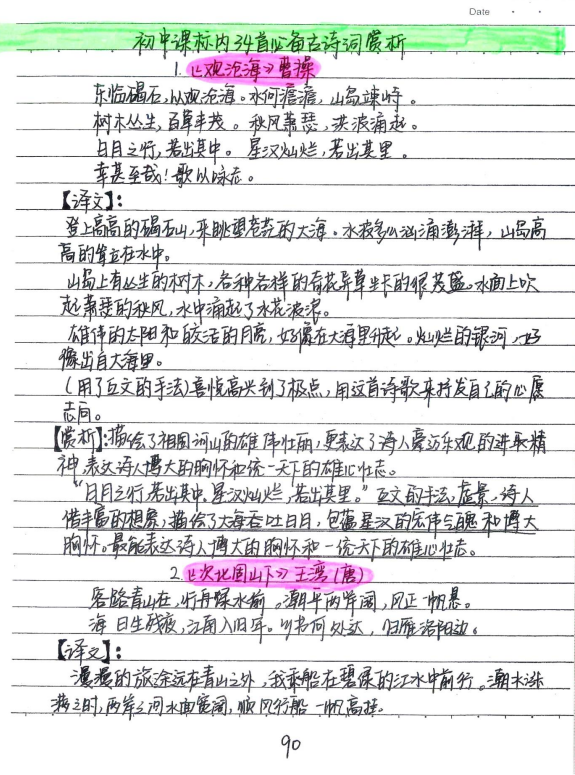 Date
初中课标内34首必备古诗词赏析
1.《观沧海》曹操
东临碣石,以观沧海。水何澹澹,山岛竦峙。
树木丛生,百草丰茂。秋风萧瑟,洪波涌起。
日月之行,若出其中。星汉灿烂,若出其里。
幸甚至哉!歌以咏志。
【译文】:
登上高高的碣石山,来眺望苍茫的大海。水波多么汹涌澎湃,山岛高
高的耸立在水中。
山岛上有丛生的树木,各种各样的奇花异草生长的很茂盛。水面上吹
起萧瑟的秋风,水中涌起了水花波浪。
雄伟的太阳和皎洁的月亮,好像在大海里升起。灿烂的银河,好
像出自大海里。
(用了互文的手法)喜悦高兴到了极点,用这首诗歌来抒发自己的心愿
志向。
【赏析】:描绘了祖国河山的雄伟壮丽,更表达了诗人豪迈乐观的进取精
神,表达诗人博大的胸怀和统一天下的雄心壮志。
“日月之行,若出其中,星汉灿烂,若出其里。”互文的手法,虚景,诗人
借丰富的想象,描绘了大海吞吐日月,包蕴星汉的宏伟气魄和博大
胸怀。最能表达诗人博大的胸怀和一统天下的雄心壮志。
2.《次北固山下》王湾(唐)
客路青山在,行舟绿水前。潮平两岸阔,风正一帆悬。
海日生残夜,江南入旧年。乡书何处达,归雁洛阳边。
【译文】:
漫漫的旅途远在青山之外,我乘船在碧绿的江水中前行。潮水涨
满之时,两岸之间水面宽阔,顺风行船一帆高挂。
90